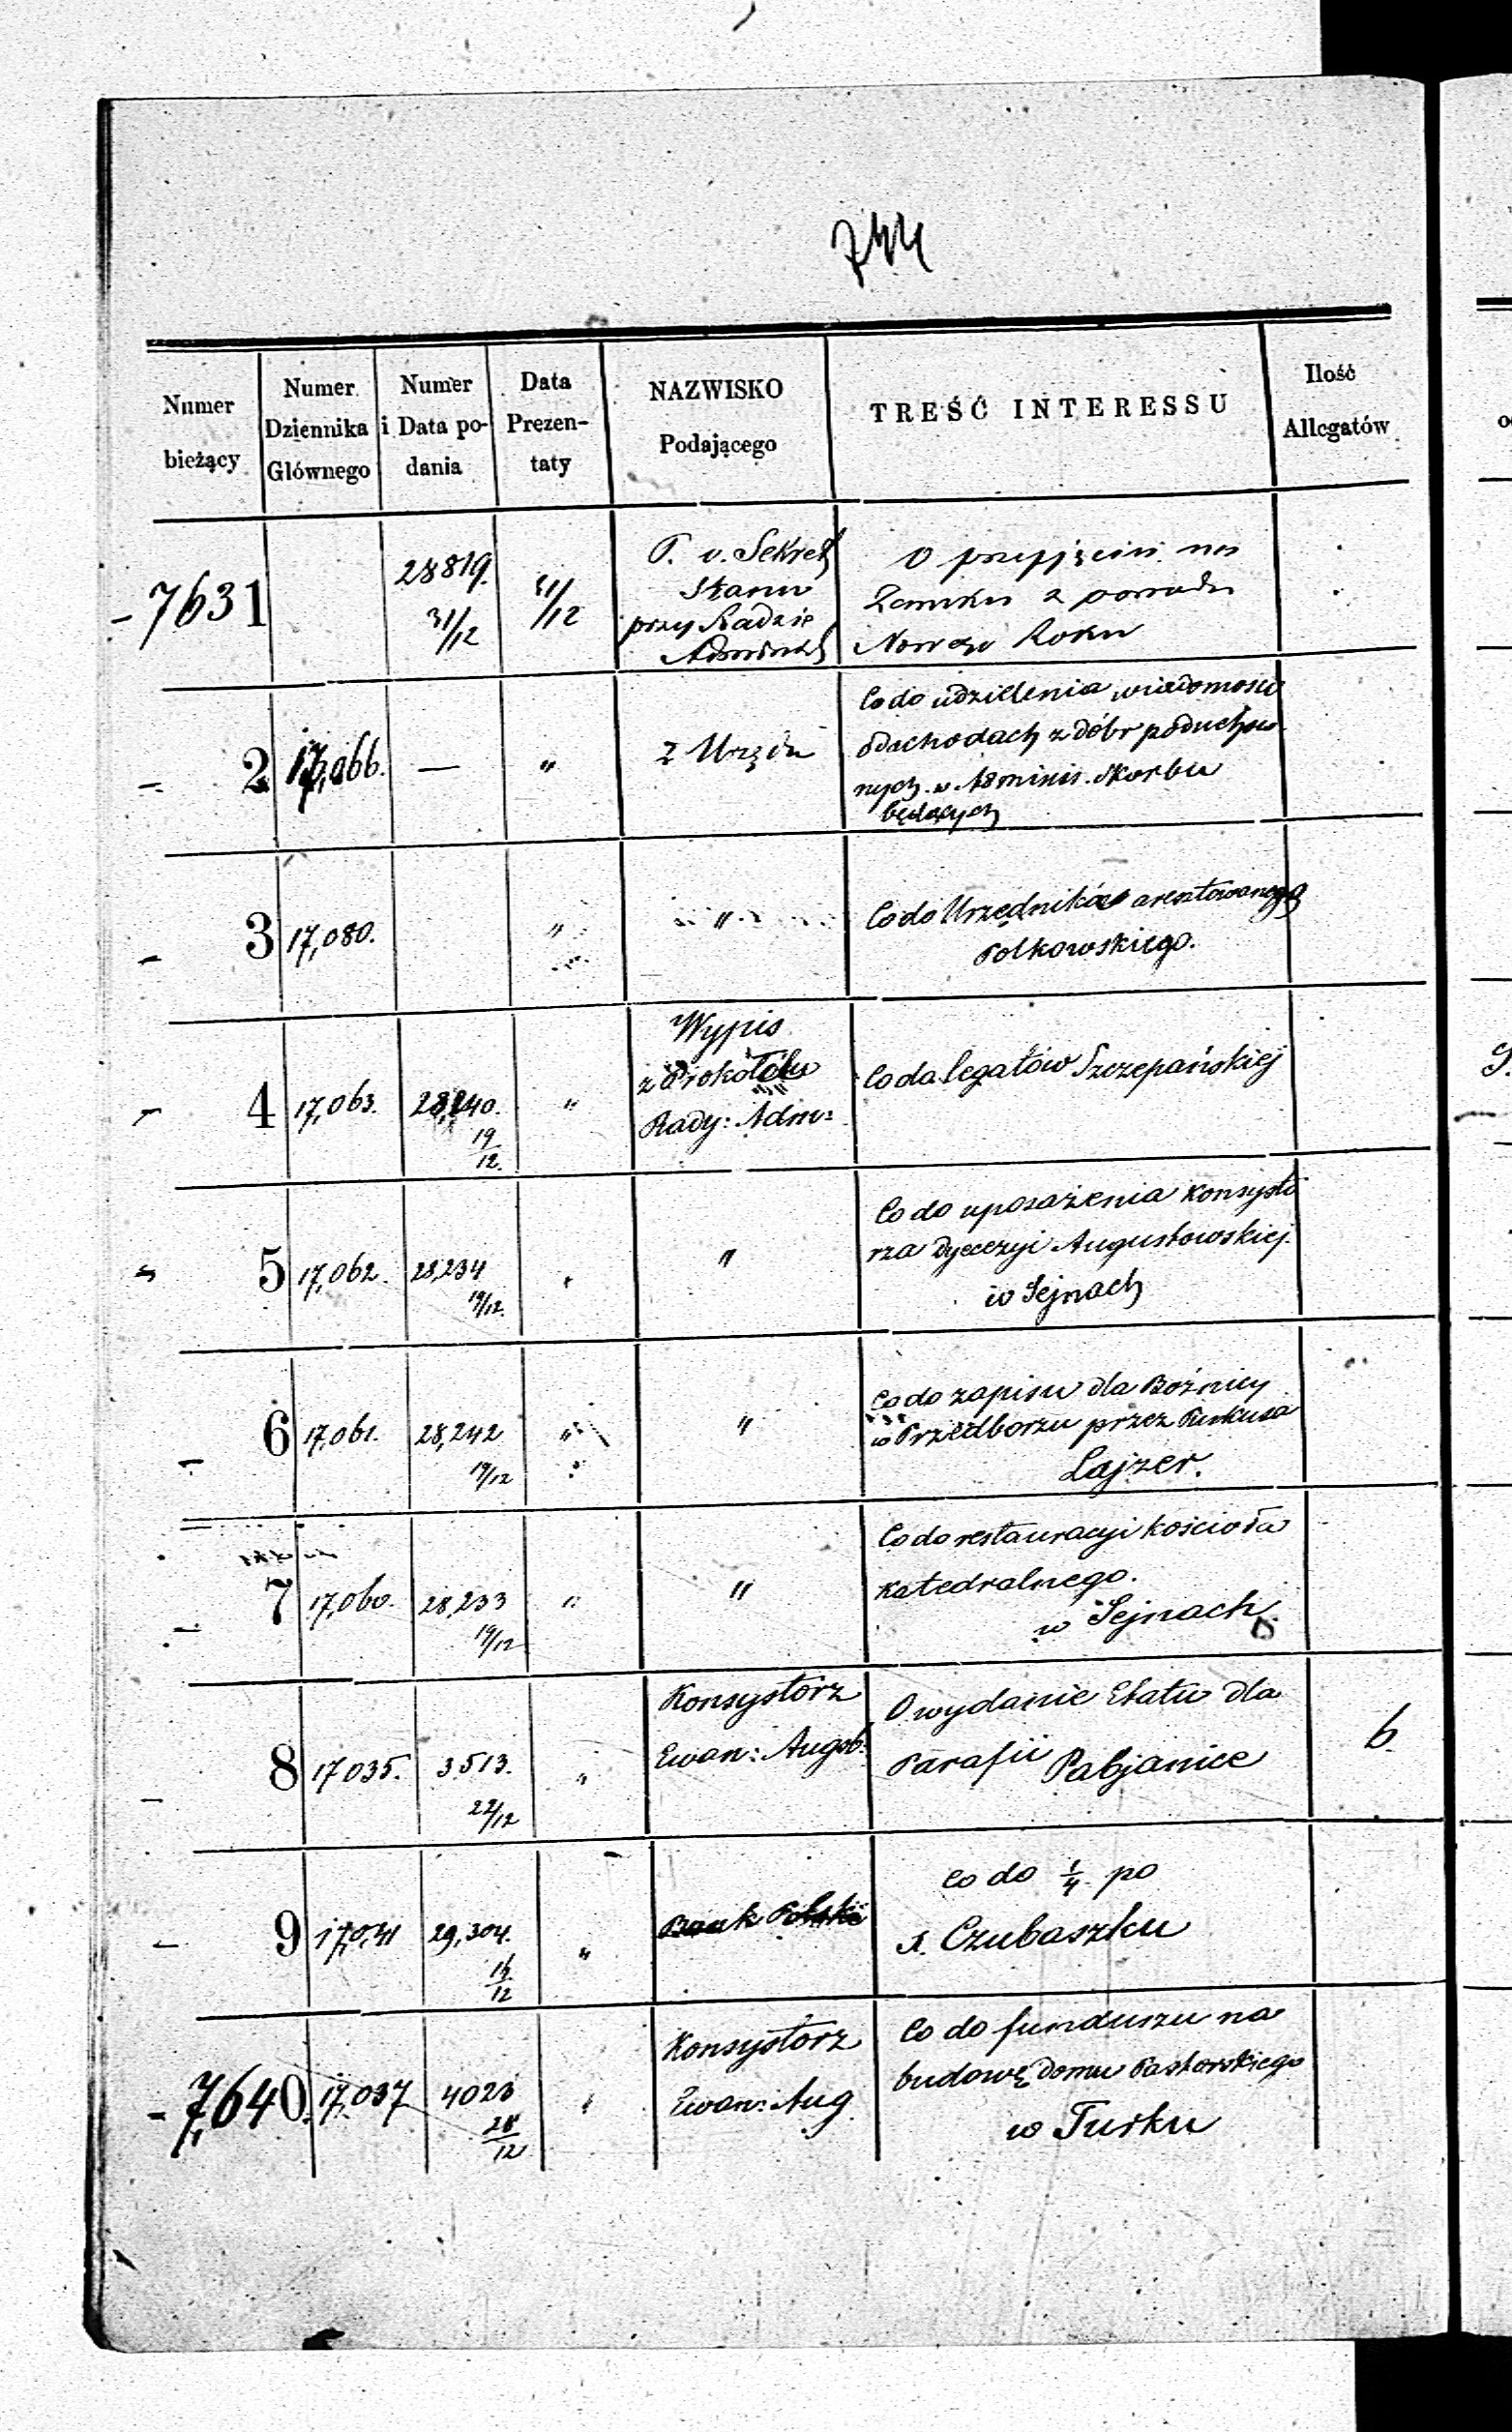 744
Numer bieżący
Numer Dziennika Głównego
Numer i Data podania
Data Prezentaty
NAZWISKO Podającego
TREŚĆ INTERESSU
Ilość Allegatów
- 7631
28819.
31/12
31/12
P. o. Sekret
Stanu
przy Radzie
Administ
O przyjęciu na
Zamku z powodu
Nowego Roku
2
17,066.
—
"
Z Urzędu
Co do udzielenia wiadomości
o dochodach z dóbr poduchow
nych w Adminis. Skarbu
będących
3
17,080.
"
"
Co do Urzędników aresztowanego
Polkowskiego.
4
17,063.
28,240.
19
12.
"
Wypis
z Protokółu
Rady: Adm:
Co do legatów Szczepańskiej
5
17,062.
28,234
19/12.
"
"
Co do uposażenia Konsysto
rza Dyecezyi Augustowskiej
w Sejnach
6
17,061.
28,242
19/12
"
"
Co do zapisu dla Bożnicy
w Przedborzu przez
Lajzer.
7
17,060.
28,233
19/12
"
"
Co do restauracyi kościoła
Katedralnego.
w Sejnach
8
17035.
3513.
22/12
"
Konsystorz
Ewan: Augsb:
O wydanie Etatu dla
Parafii Pabjanice
6
9
17,041
29,304.
12
"
Bank Polski
Co do 1/4 po
X. Czubaszku
- 7,640.
17,037
4023
28
12
"
Konsystorz
Ewan: Aug
Co do funduszu na
budowę domu Pastorskiego
w Turku